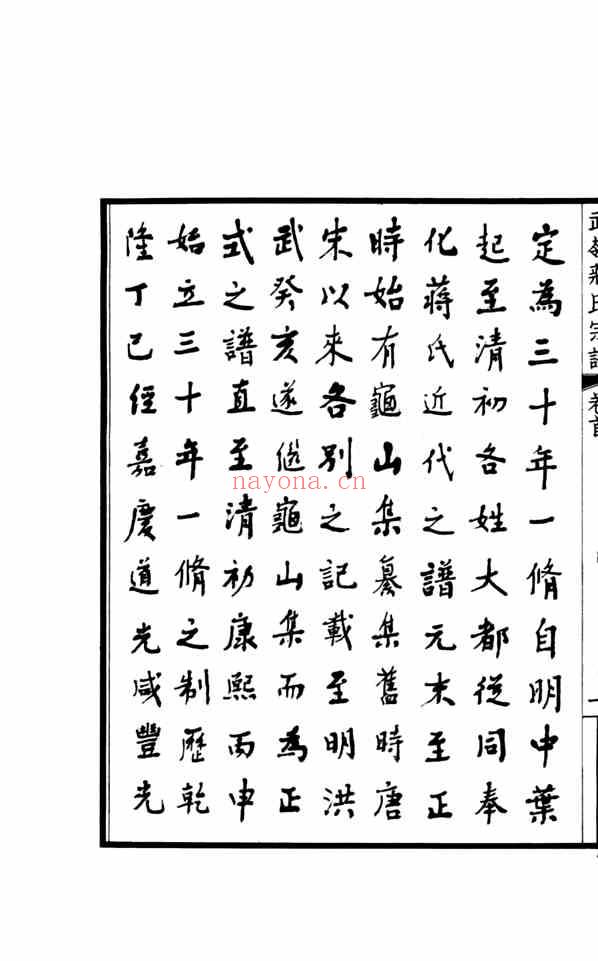 武嶺蔣氏宗譜 卷首
定為三十年一脩自明中葉
起至清初各姓大都從同奉
化蔣氏近代之譜元末至正
時始有龜山集纂集舊時唐
宋以來各別之記載至明洪
武癸亥遂從龜山集而為正
式之譜直至清初康熙丙申
始立三十年一脩之制歷乾
隆丁巳經嘉慶道光咸豐光
nayona.cn